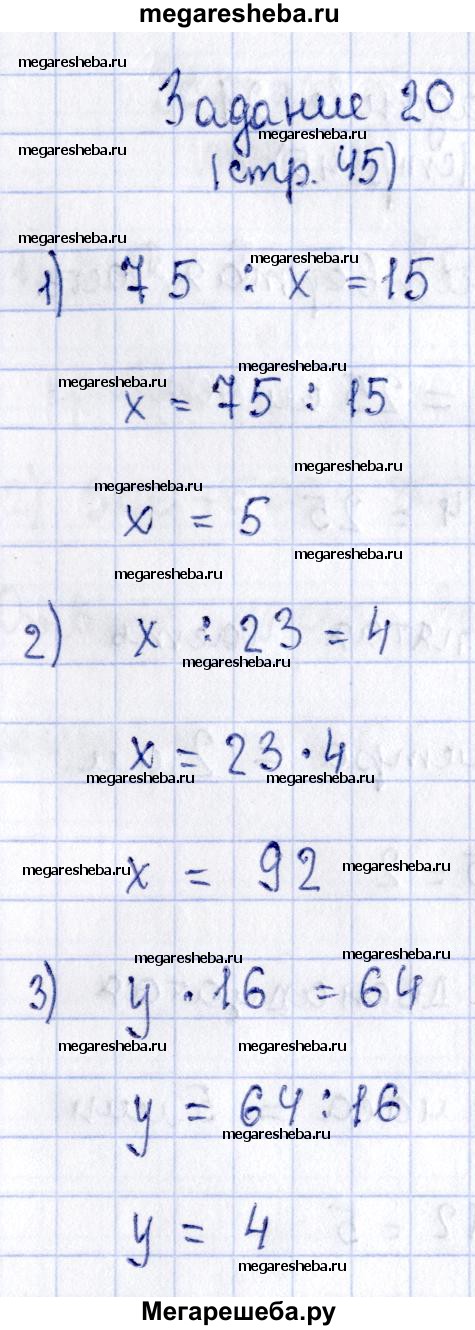 megaresheba.ru
megaresheba.ru
Задание 20
megaresheba.ru
megaresheba.ru
(стр. 45)
megaresheba.ru
megaresheba.ru
1) 75 : x = 15
megaresheba.ru
megaresheba.ru
x = 75 : 15
megaresheba.ru
megaresheba.ru
x = 5
megaresheba.ru
megaresheba.ru
2) x : 23 = 4
megaresheba.ru
x = 23 · 4
megaresheba.ru megaresheba.ru
megaresheba.ru megaresheba.ru
x = 92
megaresheba.ru megaresheba.ru
3) y · 16 = 64
megaresheba.ru megaresheba.ru
y = 64 : 16
megaresheba.ru
y = 4
megaresheba.ru
Мегарешеба.ру